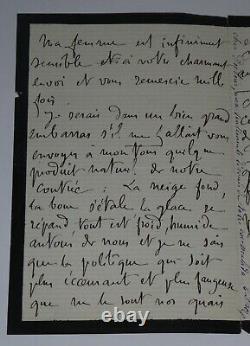 Ma femme est infiniment
sensible et à votre charmant
envoi et vous remercie mille
fois.
Je serais dans un bien grand
embarras s'il me fallait vous
envoyer à mon tour quelque
produit naturel de notre
contrée : La neige fond,
la boue s'étale la glace se
répand tout est froid, humide
autour de nous et je ne sais
que la politique qui soit
plus écoeurant et plus fangeuse
que ne le sont nos quais